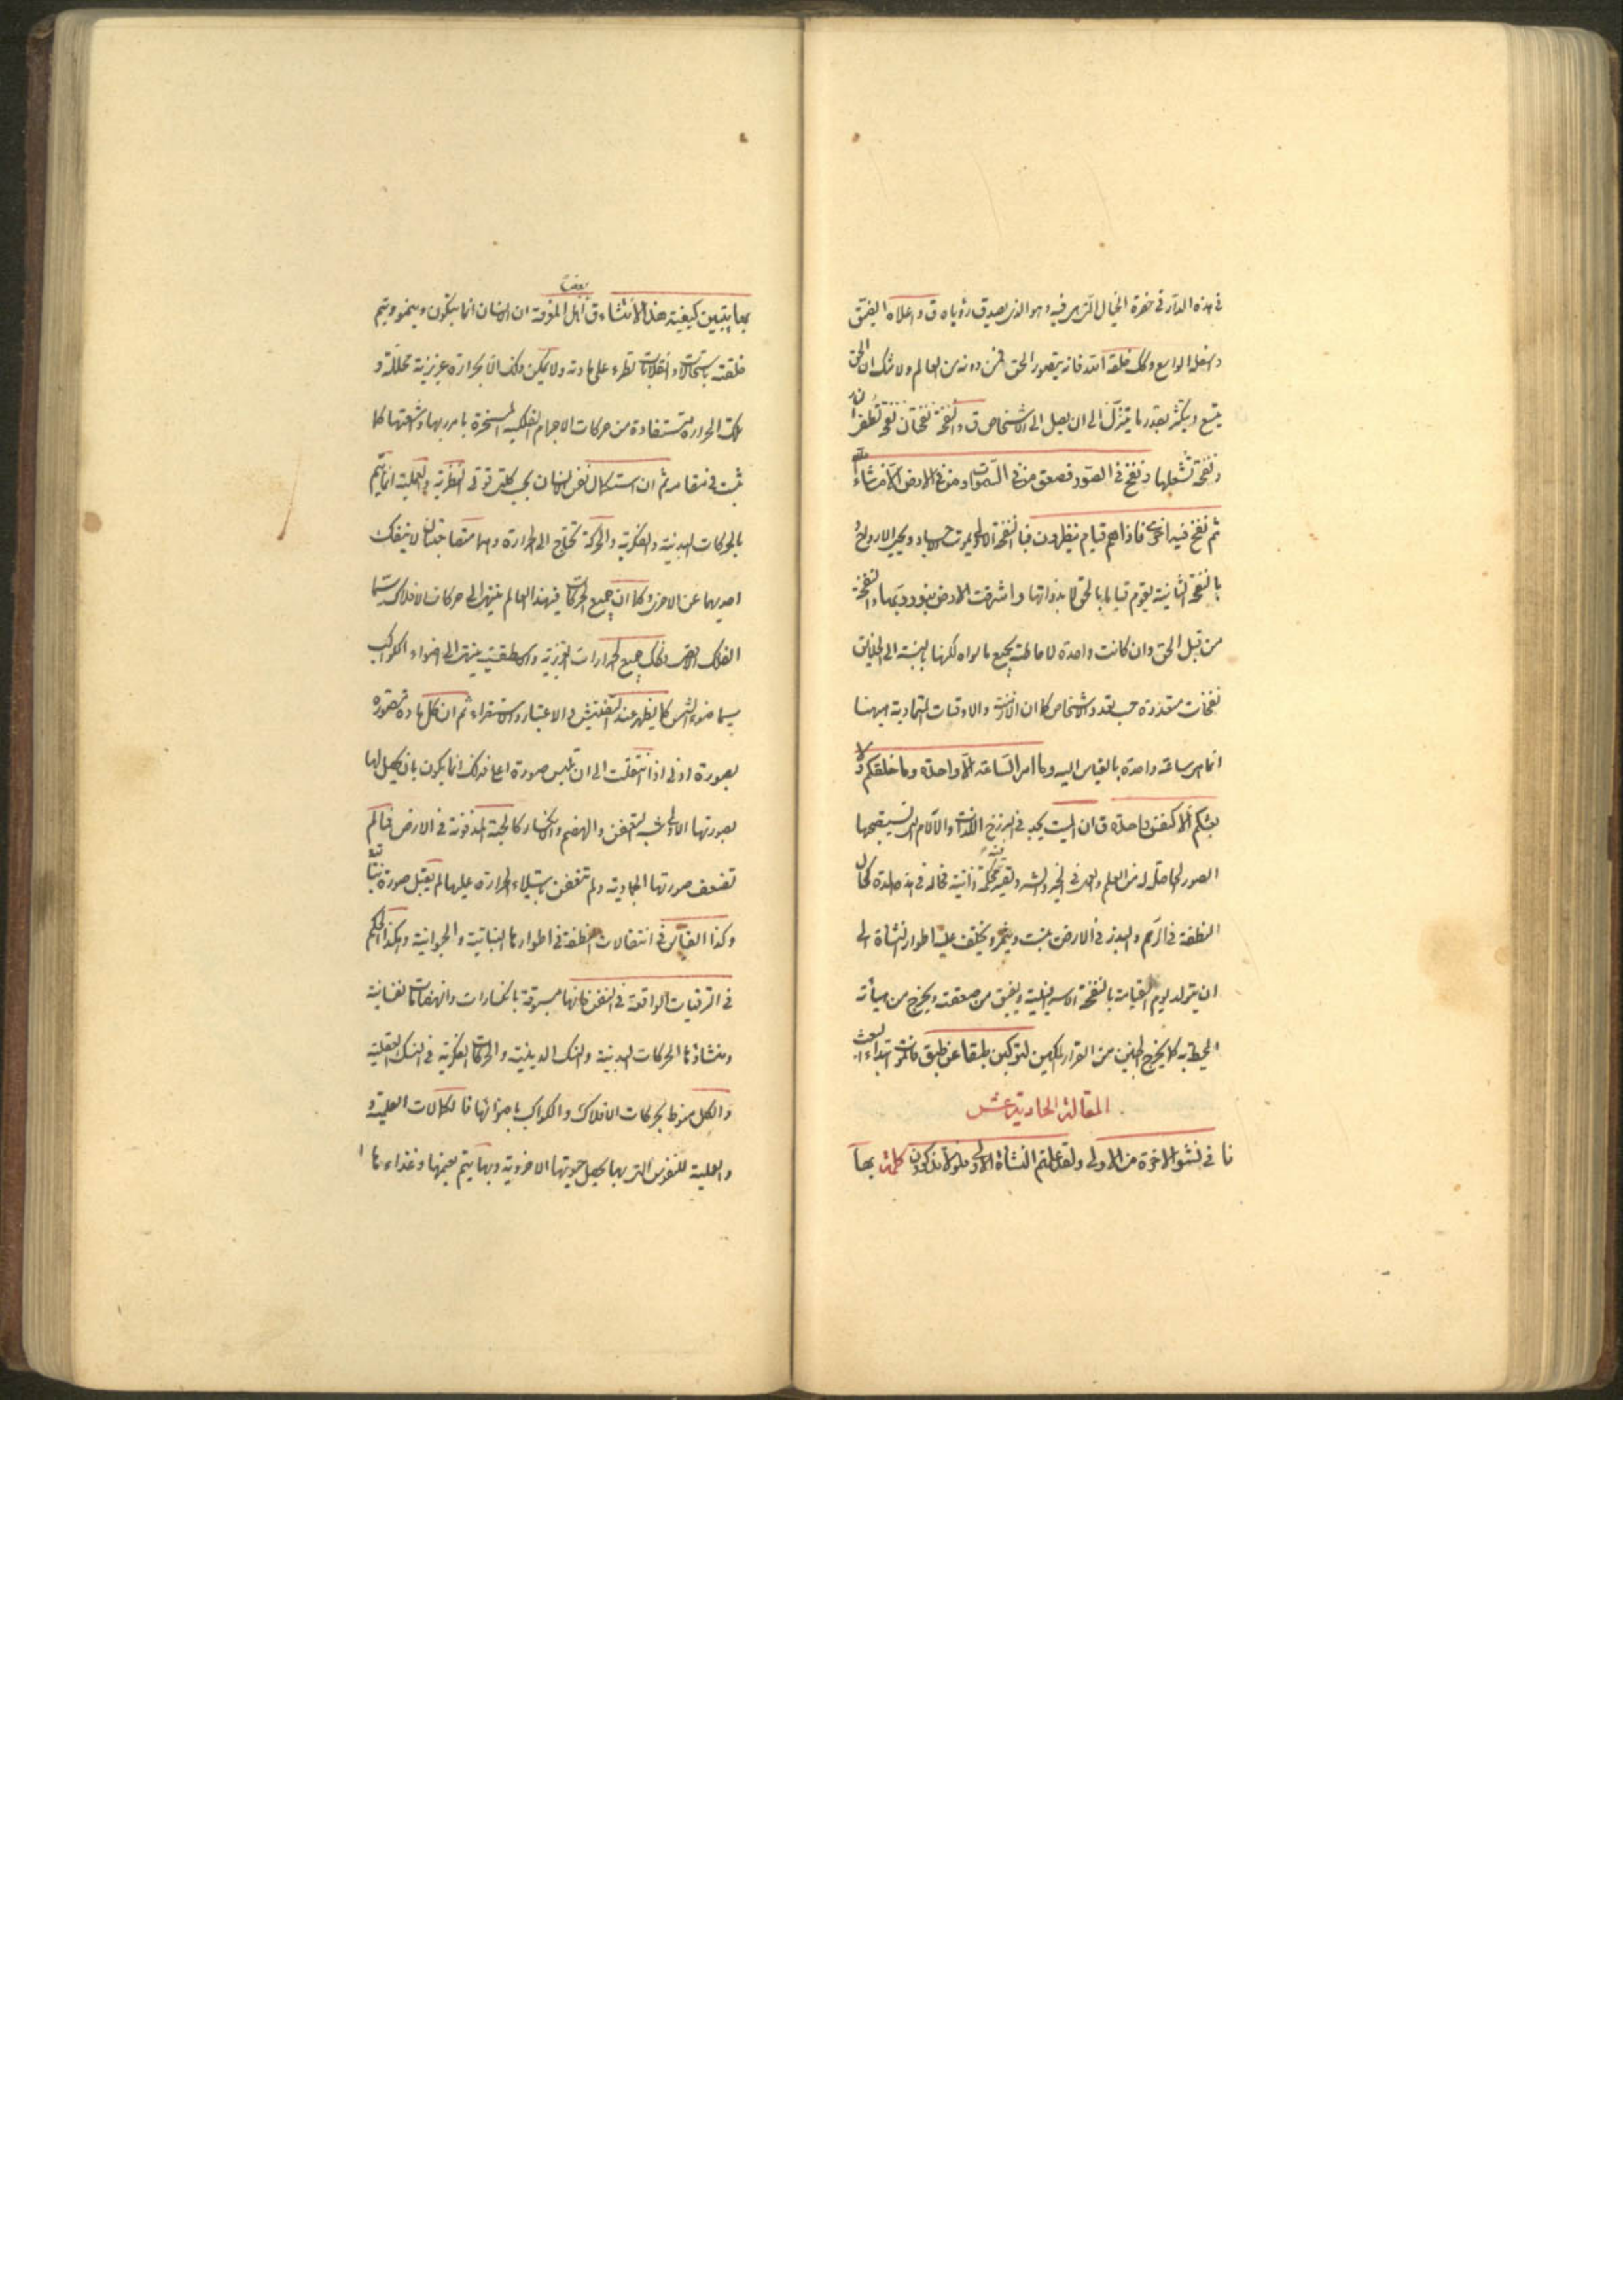 في هذه الدار في حضرة الخيال التي هي فيه وهو الذي يصدق رؤياه ق واعلاه الضيق
واسفله الواسع وكك خلقه الله فانه يتصور الحق فمن دونه من العالم ولا شك ان الحق
يتسع ويتكثر بقدر ما يتنزل الى ان يصل الى الاشخاص ق والنفخة نفختان نفخة تطفئ النار
ونفخة تشعلها ونفخ في الصور فصعق من في السموات ومن في الارض الا من شاء الله
ثم نفخ فيه اخرى فاذا هم قيام ينظرون فبالنفخة الاولى يموت الاجساد ويحيى الارواح و
بالنفخة الثانية يقوم قياما بالحق لا بذواتها واشرقت الارض بنور ربها والنفخة
من قبل الحق وان كانت واحدة لاحاطته بجميع ما سواه لكنها بالنسبة الى الخلايق
نفخات متعددة حسب تعدد الاشخاص كما ان الازمنة والاوقات المتمادية ههنا
انما هي ساعة واحدة بالقياس اليه وما امر الساعة الا واحدة وما خلقكم ولا
بعثكم الا كنفس واحدة ق ان الميت يجد في البرزخ اللذات والآلام التي تستصحبها
الصور الحاصلة له من العلم والعمل في الخير والشر فحاله في هذه المدة كحال
النطفة في الرحم والبذر في الارض ينبت ويثمر ويختلف عليه اطوار النشأة الى
ان يتولد يوم القيامة بالنفخة الاسرافيلية ويفيق من صعقته ويخرج من هيأته
المحيطة به كما يخرج الجنين من القرار المكين لتركبن طبقا عن طبق فالموت ابتداء البعث
المقالة الحادية عشر
نا في نشو الاخرة من الاولى ولقد علمتم النشأة الاولى فلولا تذكرون كلمة بها
بها يتبين كيفية هذا الانشاء ق بعض اهل المعرفة ان الانسان انما يتكون وينمو ويتم
خلقته باستحالات وانقلابات تطرء على مادته ولا يمكن ذلك الا بحرارة غريزية محللة و
تلك الحرارة مستفادة من حركات الاجرام الفلكية المسخرة بامر ربها واشعتها كما
ثبت في مقامه ثم ان استكمال نفس الانسان بحسب كلتي قوتي النظرية والعملية انما يتم
بالحركات البدنية والفكرية والحركة تحتاج الى الحرارة وهما متصاحبتان لا ينفك
احديهما عن الاخرى وكما ان جميع الحركات في هذا العالم ينتهي الى حركات الافلاك سيما
الفلك الاقصى فكك جميع الحرارات الغريزية والاسطقسية ينتهي الى اضواء الكواكب
سيما ضوء الشمس كما يظهر عند التفتيش والاعتبار والاستقراء ثم ان كل مادة متصورة
بصورة ادنى اذا انتقلت الى ان تلبس صورة اعلى فذلك انما يكون بان يحصل لها
بصورتها الاولى شبه التعفن والهضم والانكسار كالحبة المدفونة في الارض فما لم
تضعف صورتها الجمادية ولم تتعفن باستيلاء الحرارة عليها لم يقبل صورة نباتية
وكذا القياس في انتقالات النطفة في اطوارها النباتية والحيوانية وهكذا الحكم
في الترقيات الواقعة في النفس فانها مسبوقة بانكسارات وانهضامات نفسانية
ومنشاؤها الحركات البدنية والنسك الدينية والحركات الفكرية في النسك العقلية
والكل منوط بحركات الافلاك والكواكب باضوائها فالكمالات العلمية و
والعملية للنفوس التي بها يحصل حيوتها الاخروية وبها يتم نعيمها وغذاءها